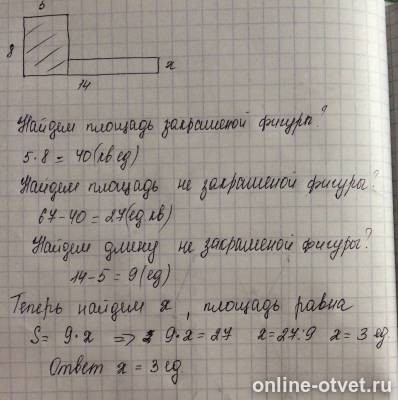 5
8
x
14
Найдем площадь закрашеной фигуры?
5·8 = 40 (кв ед)
Найдем площадь не закрашеной фигуры?
67-40 = 27 (ед. кв)
Найдем длину не закрашеной фигуры?
14-5 = 9 (ед)
Теперь найдем x, площадь равна
S = 9·x => 9·x = 27 x = 27:9 x = 3 ед
Ответ x = 3 ед
online-otvet.ru